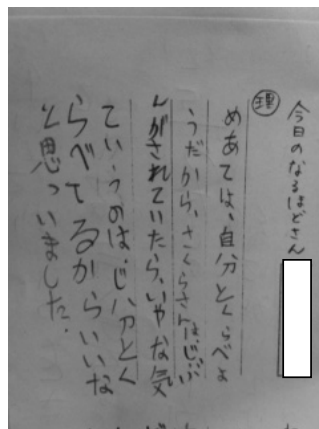 今日のなるほどさん
理
めあては、自分とくらべよ
うだから、さくらさんはじぶ
んがされていたら、いやな気
ていうのは、じ分とく
らべてるからいいな
と思っいました。